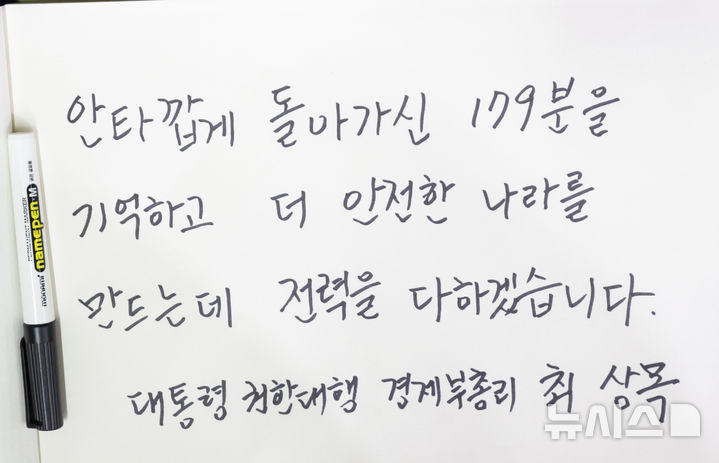 안타깝게 돌아가신 179분을
기억하고 더 안전한 나라를
만드는데 전력을 다하겠습니다.
대통령 권한대행 경제부총리 최 상목
뉴시스
monami namepen-M
PERMANENT MARKER